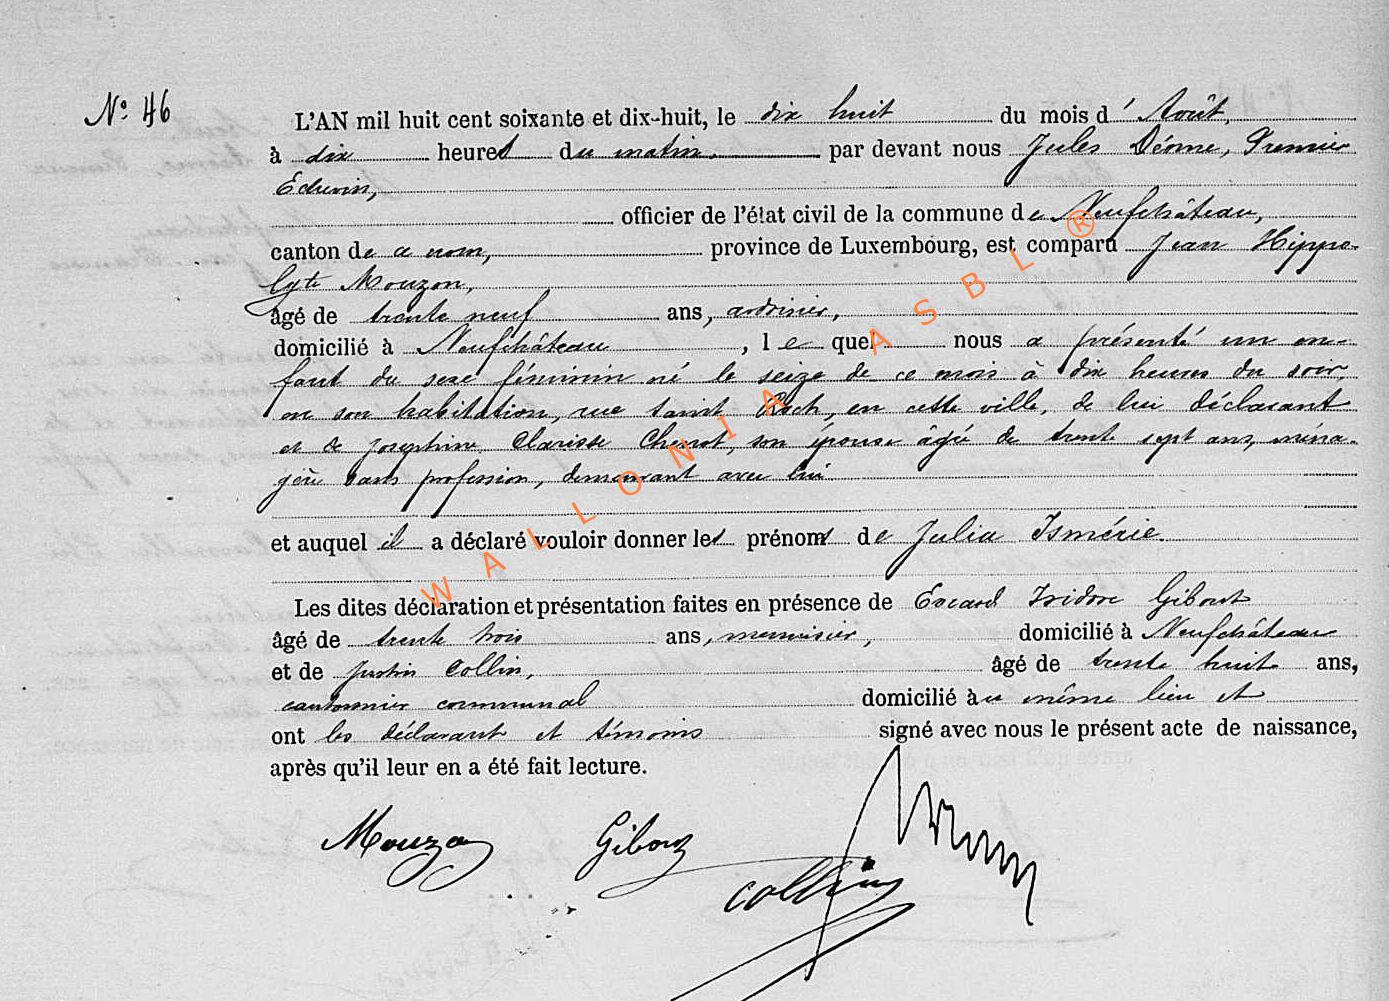 N° 46
L'AN mil huit cent soixante et dix-huit, le dix huit du mois d'Août,
à dix heures du matin par devant nous Jules Déome, Premier
Echevin,
officier de l'état civil de la commune de Neufchâteau,
canton de ce nom, province de Luxembourg, est comparu Jean Hippo-
lyte Mouzon,
âgé de trente neuf ans, ardoisier,
domicilié à Neufchâteau, le quel nous a présenté un en-
fant du sexe féminin né le seize de ce mois à dix heures du soir,
en son habitation, rue Saint Roch, en cette ville, de lui déclarant
et de Joséphine Clarisse Chenot, son épouse âgée de trente sept ans, ména-
gère sans profession, demeurant avec lui
et auquel il a déclaré vouloir donner les prénoms de Julia Ismérie.
Les dites déclaration et présentation faites en présence de Evrard Isidore Gibout
âgé de trente trois ans, menuisier, domicilié à Neufchâteau
et de Justin Collin, âgé de trente huit ans,
cantonnier communal domicilié au même lieu et
ont les déclarant et témoins signé avec nous le présent acte de naissance,
après qu'il leur en a été fait lecture.
Mouzon Gibout
Collin
WALLONIA ASBL ®